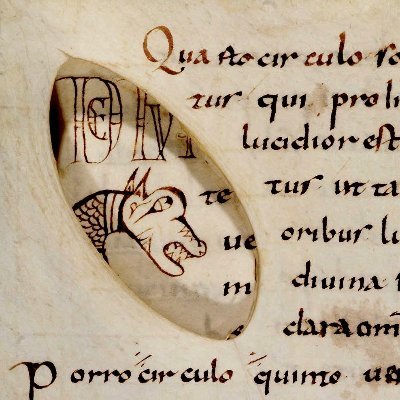 Quarto circulo so
tur qui pro
lucidior est
te tur ut ta
ue oribus lu
m diuina
clara om
Porro circulo quinto